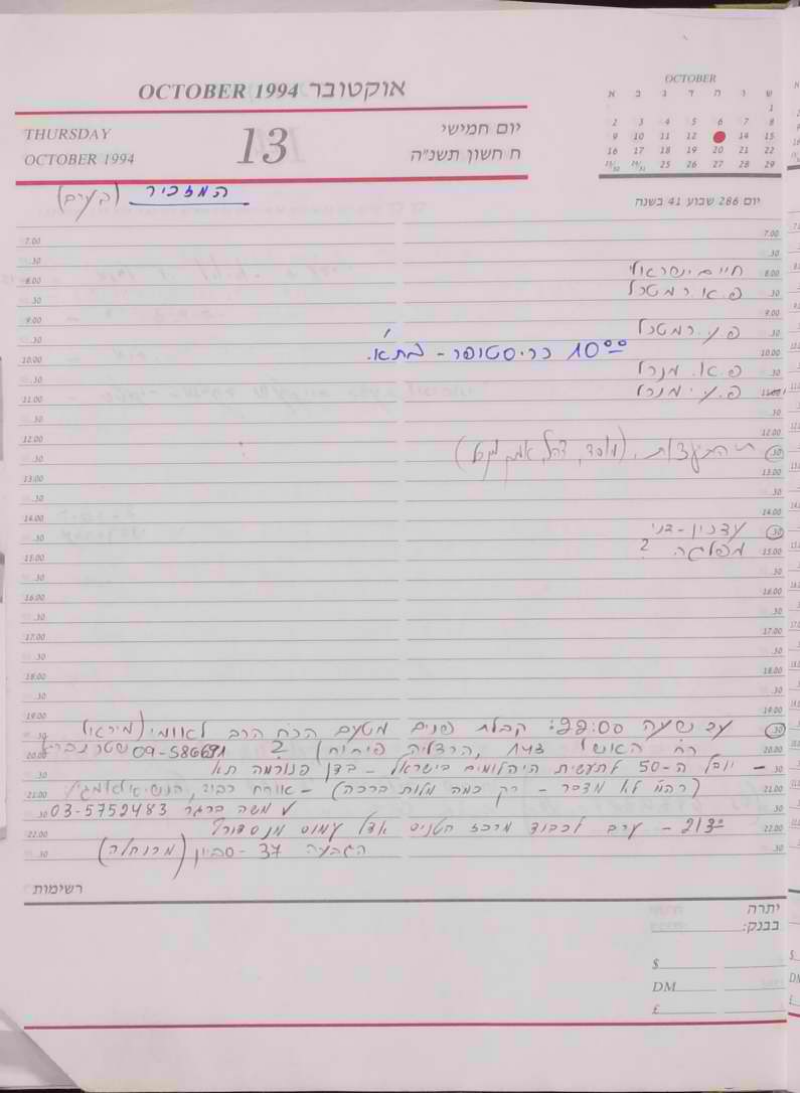 אוקטובר OCTOBER 1994
THURSDAY
OCTOBER 1994
13
יום חמישי
ח חשון תשנ"ה
OCTOBER
א ב ג ד ה ו ש
1
2 3 4 5 6 7 8
9 10 11 12 14 15
16 17 18 19 20 21 22
23/30 24/31 25 26 27 28 29
יום 286 שבוע 41 בשנה
המזכיר
7.00
.30
חיים ישראלי 8.00
פ.א. רמטכל .30
9.00
פ.ע. רמטכל .30
10°° כריסטופר - בתא. 10.00
פ.א. מנכל .30
פ.ע. מנכל 11.00
.30
12.00
התיעצות, (מוסד, .30
13.00
.30
14.00
עדכון - בני .30
מפלגה ? 15.00
.30
16.00
.30
17.00
.30
18.00
.30
19.00
עב משעה 22:00: קבלת פנים מטעם הרב לאומי .30
רח האשל 143, הרצליה פיתוח) ? 09-586691 20.00
– יובל ה-50 לתעשית היהלומים בישראל – בגן פנורמה תא .30
(רהמ לא מדבר – רק כמה מלות ברכה) – אורח כבוד, 21.00
משה ברגר 03-5752483 .30
21³⁰ – ערב לכבוד מרכז הטניס אצל עמוס 22.00
הגבעה 37 - סביון .30
רשימות
יתרה
בבנק:
$
DM
£